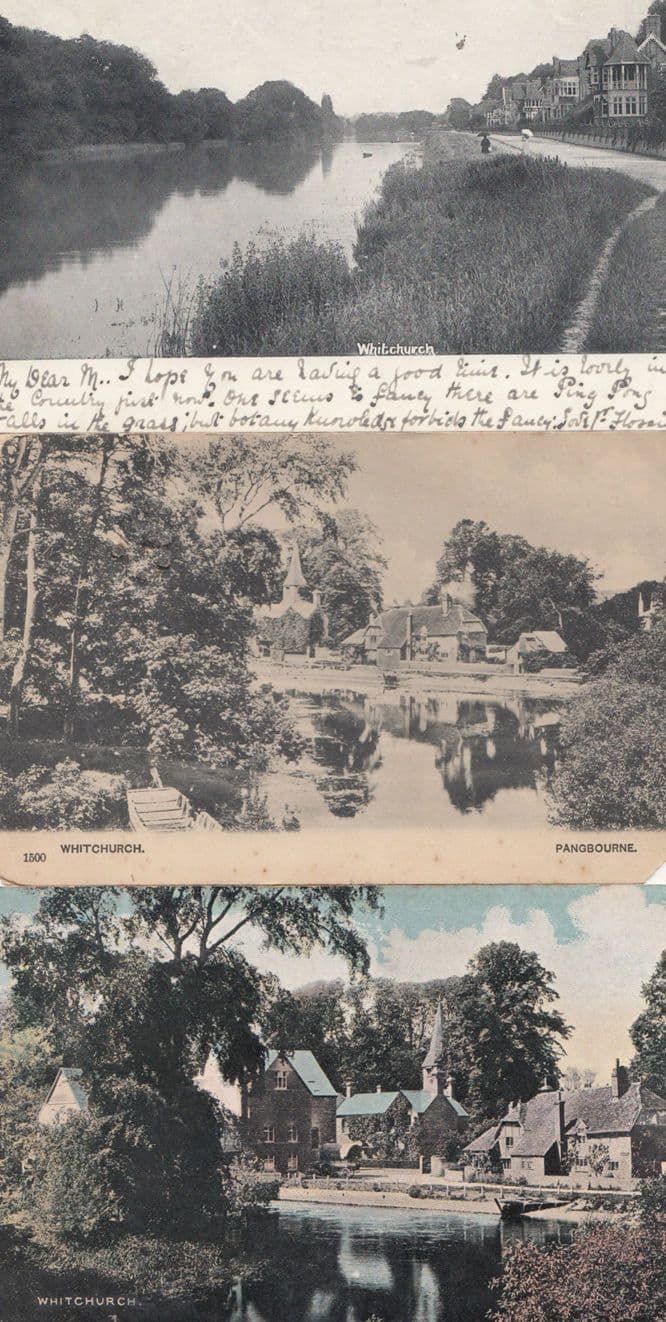 Whitchurch
My Dear M.. I hope you are having a good time. It is lovely in
the Country just now. One seems to fancy there are Ping Pong
Balls in the grass, but botany knowledge forbids the fancy.
1500 WHITCHURCH. PANGBOURNE.
WHITCHURCH.